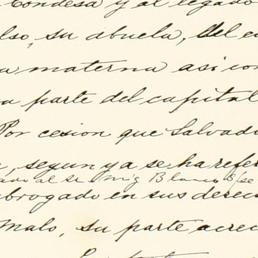 Condesa y al legado
su abuela, del
materna asi con
parte del capital
Por cesion que Salvado
segun ya se ha refer
Blanco
brogado en sus derec
Malo, su parte acree